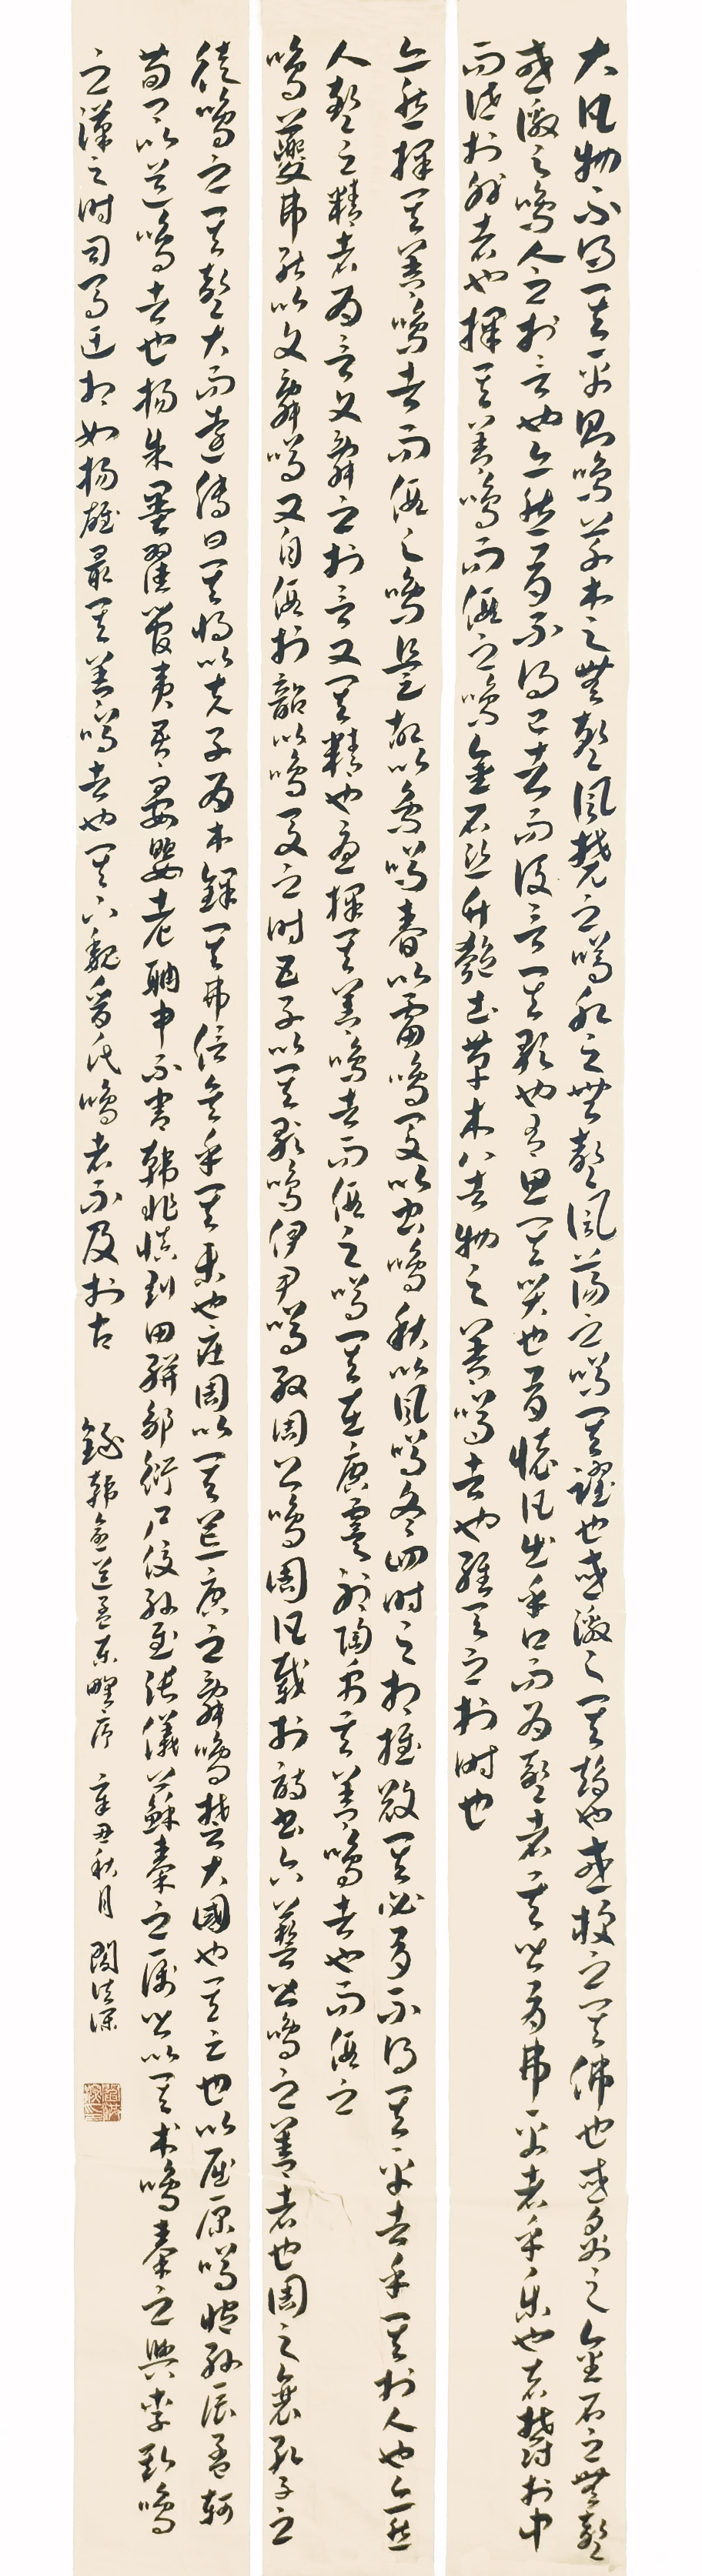 大凡物不得其平則鳴草木之無聲風撓之鳴水之無聲風蕩之鳴其躍也或激之其趨也或梗之其沸也或炙之金石之無聲
或激之鳴人之於言也亦然有不得已者而後言其歌也有思其哭也有懷凡出乎口而為聲者其皆有弗平者乎樂也者鬱於中
而泄於外者也擇其善鳴而假之鳴金石絲竹匏土革木八者物之善鳴者也維天之於時也
亦然擇其善鳴者而假之鳴是故以鳥鳴春以雷鳴夏以蟲鳴秋以風鳴冬四時之相推敚其必有不得其平者乎其於人也亦然
人聲之精者為言文辭之於言又其精也尤擇其善鳴者而假之鳴其在唐虞咎陶禹其善鳴者也而假之
鳴夔弗能以文辭鳴又自假於韶以鳴夏之時五子以其歌鳴伊尹鳴殷周公鳴周凡載於詩書六藝皆鳴之善者也周之衰孔子之
徒鳴之其聲大而遠傳曰天將以夫子為木鐸其弗信矣乎其末也莊周以其荒唐之辭鳴楚大國也其亡也以屈原鳴臧孫辰孟軻
荀卿以道鳴者也楊朱墨翟管夷吾晏嬰老聃申不害韓非慎到田駢鄒衍尸佼孫武張儀蘇秦之屬皆以其術鳴秦之興李斯鳴
之漢之時司馬遷相如揚雄最其善鳴者也其下魏晉氏鳴者不及於古 錄韓愈送孟東野序 辛丑秋月